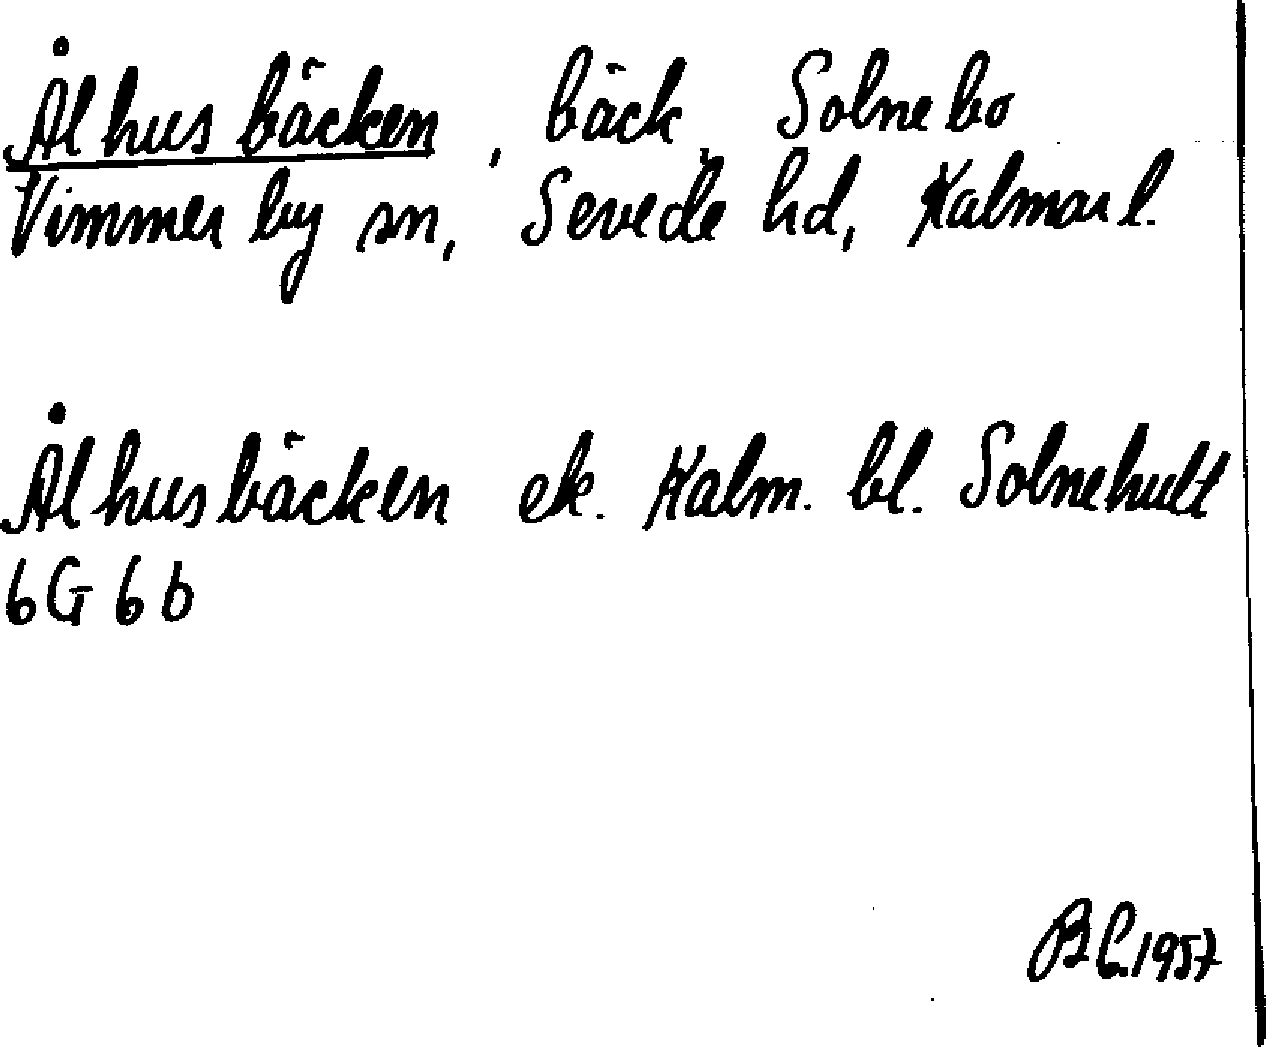 Ålhusbäcken, bäck, Solnebo
Vimmerby sn, Sevede hd, Kalmar l.
Ålhusbäcken ek. Kalm. bl. Solnehult
6G 6b
BL 1957